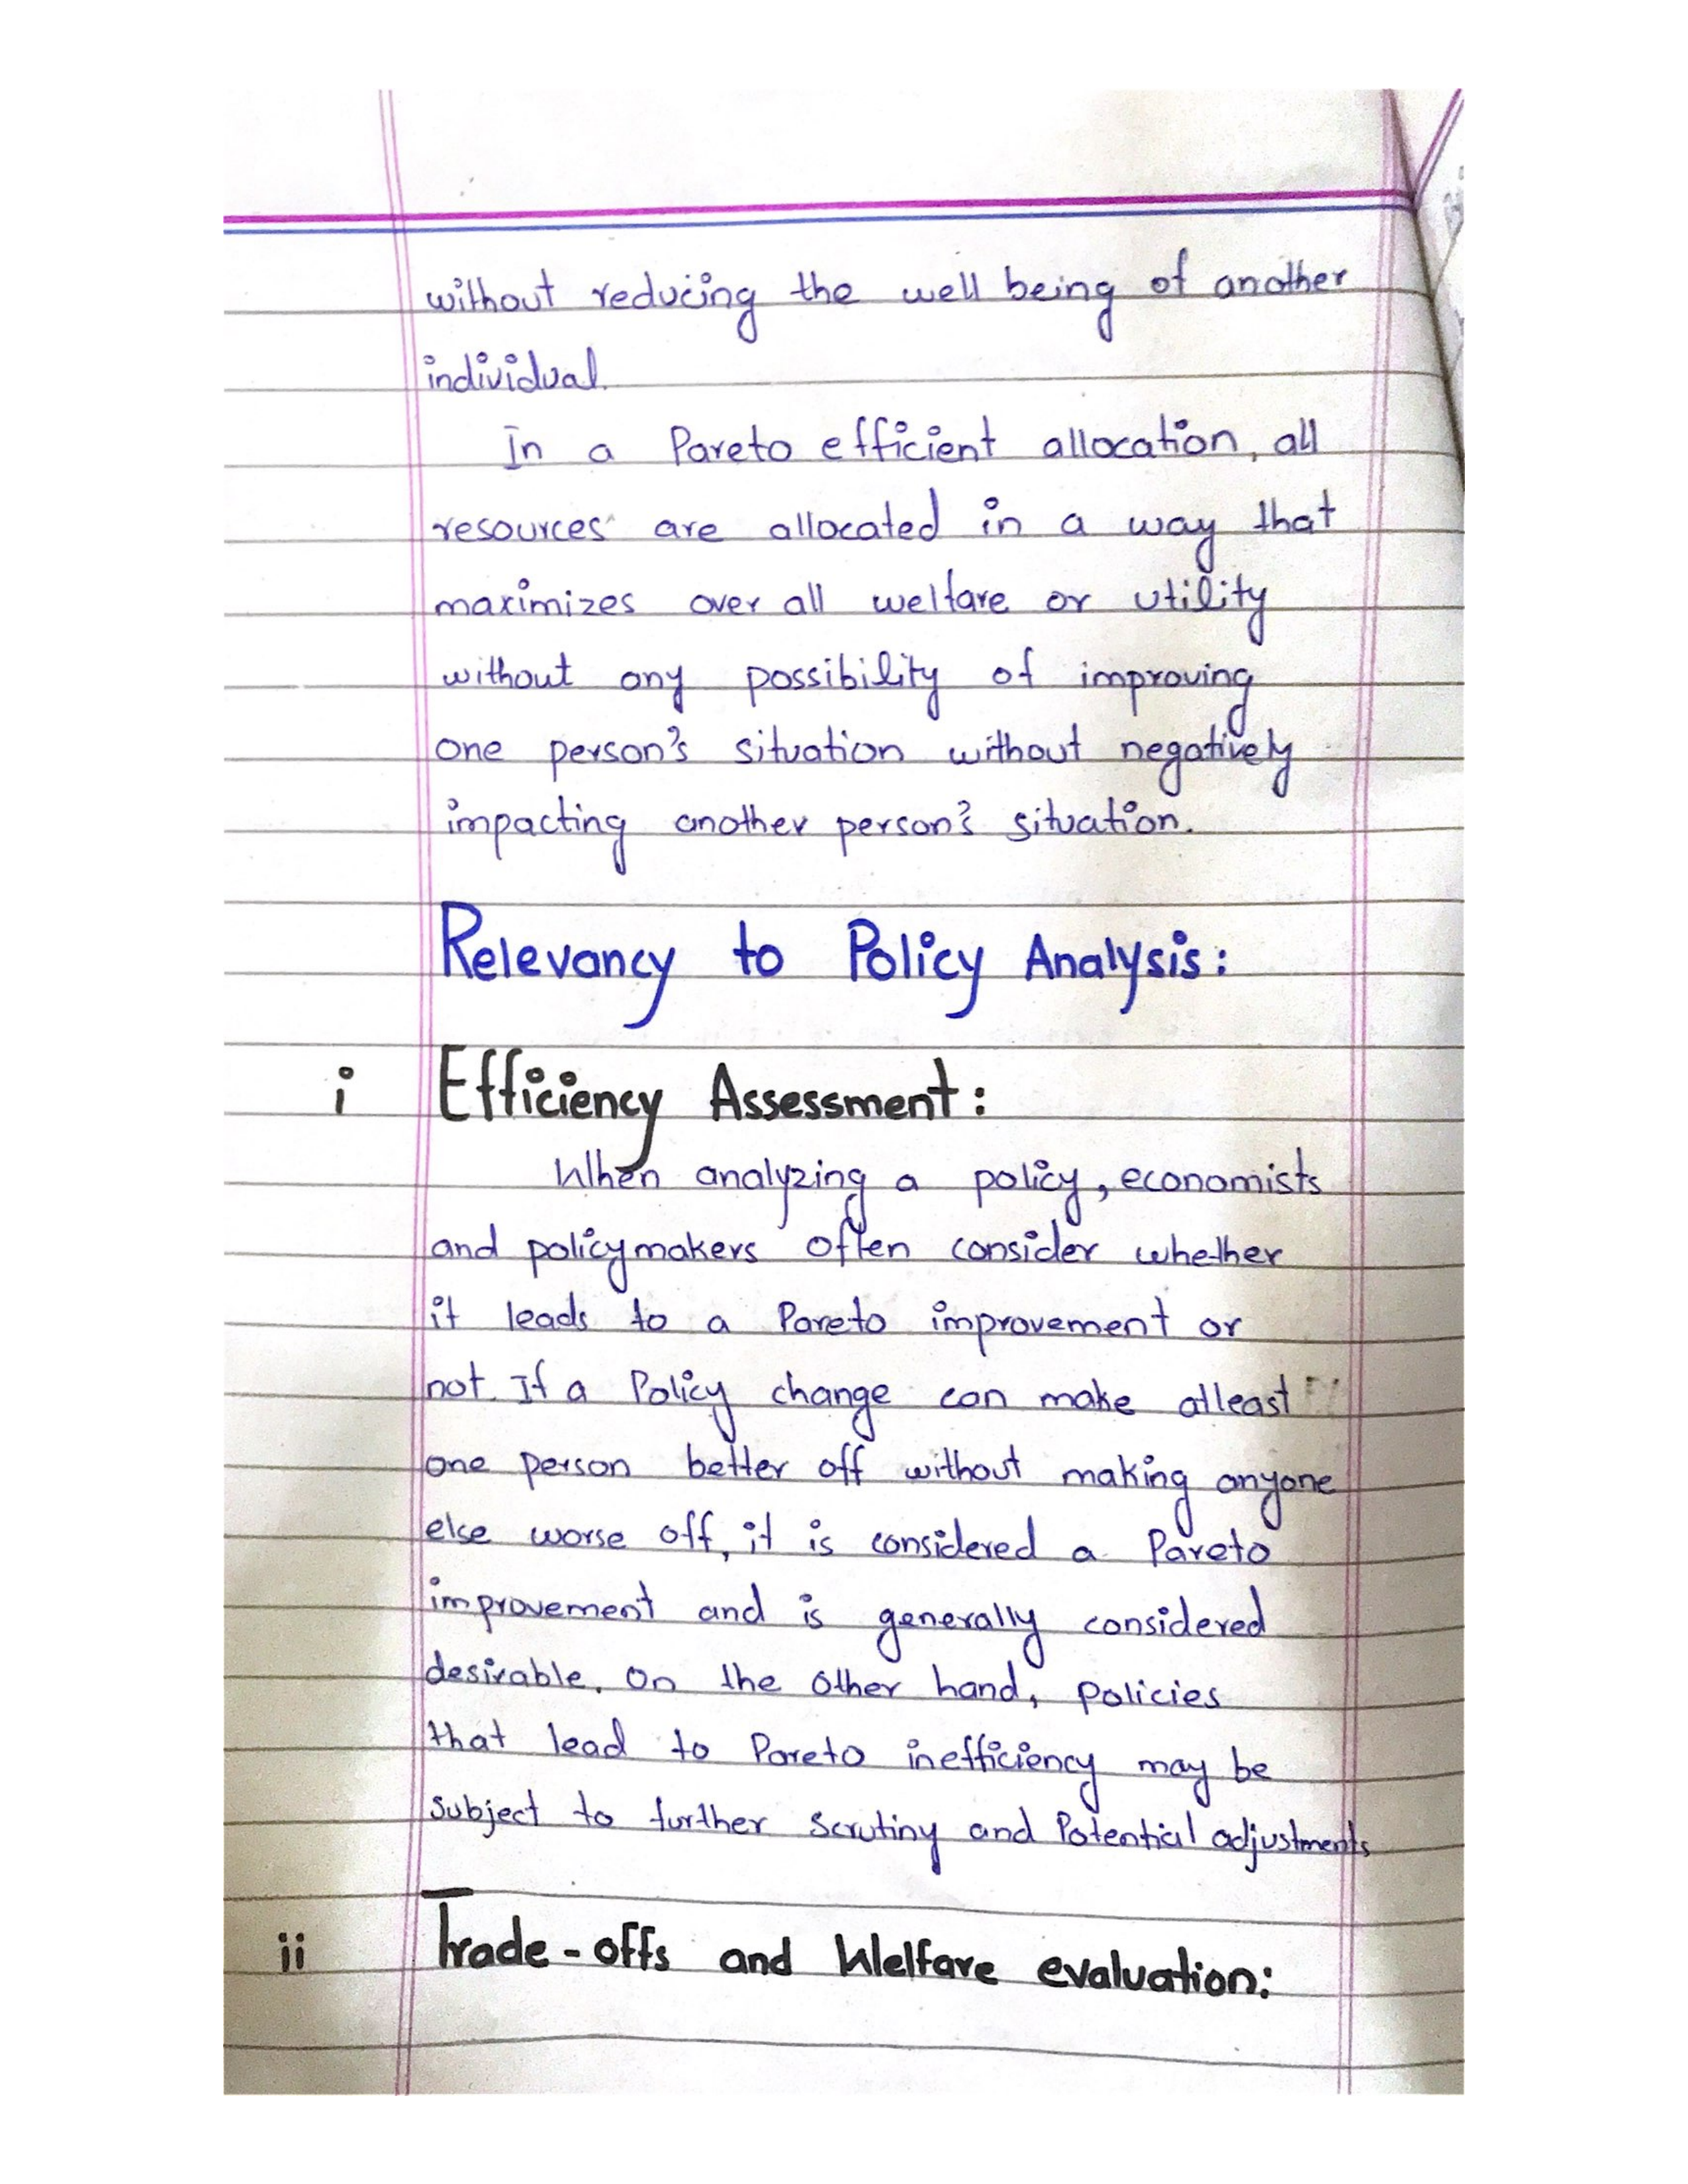 without reducing the well being of another
individual.
In a Pareto efficient allocation, all
resources are allocated in a way that
maximizes over all welfare or utility
without any possibility of improving
one person's situation without negatively
impacting another person's situation.
Relevancy to Policy Analysis:
i Efficiency Assessment:
When analyzing a policy, economists
and policymakers often consider whether
it leads to a Pareto improvement or
not. If a Policy change can make atleast
one person better off without making anyone
else worse off, it is considered a Pareto
improvement and is generally considered
desirable. On the other hand, policies
that lead to Pareto inefficiency may be
subject to further scrutiny and Potential adjustments
ii Trade-offs and Welfare evaluation: